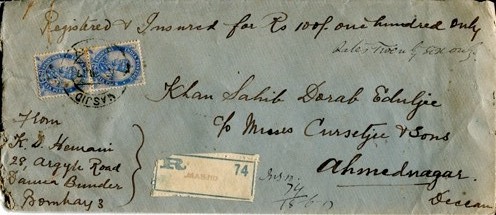 Registered & Insured for Rs 100/- one hundred only
MASJID
Khan Sahib Dorab Eduljee
c/o Messrs Cursetjee & Sons
Ahmednagar.
Deccan
From
K. D. Hemani
28 Argyle Road
Danna Bunder
Bombay 3
R
MASJID
74
74